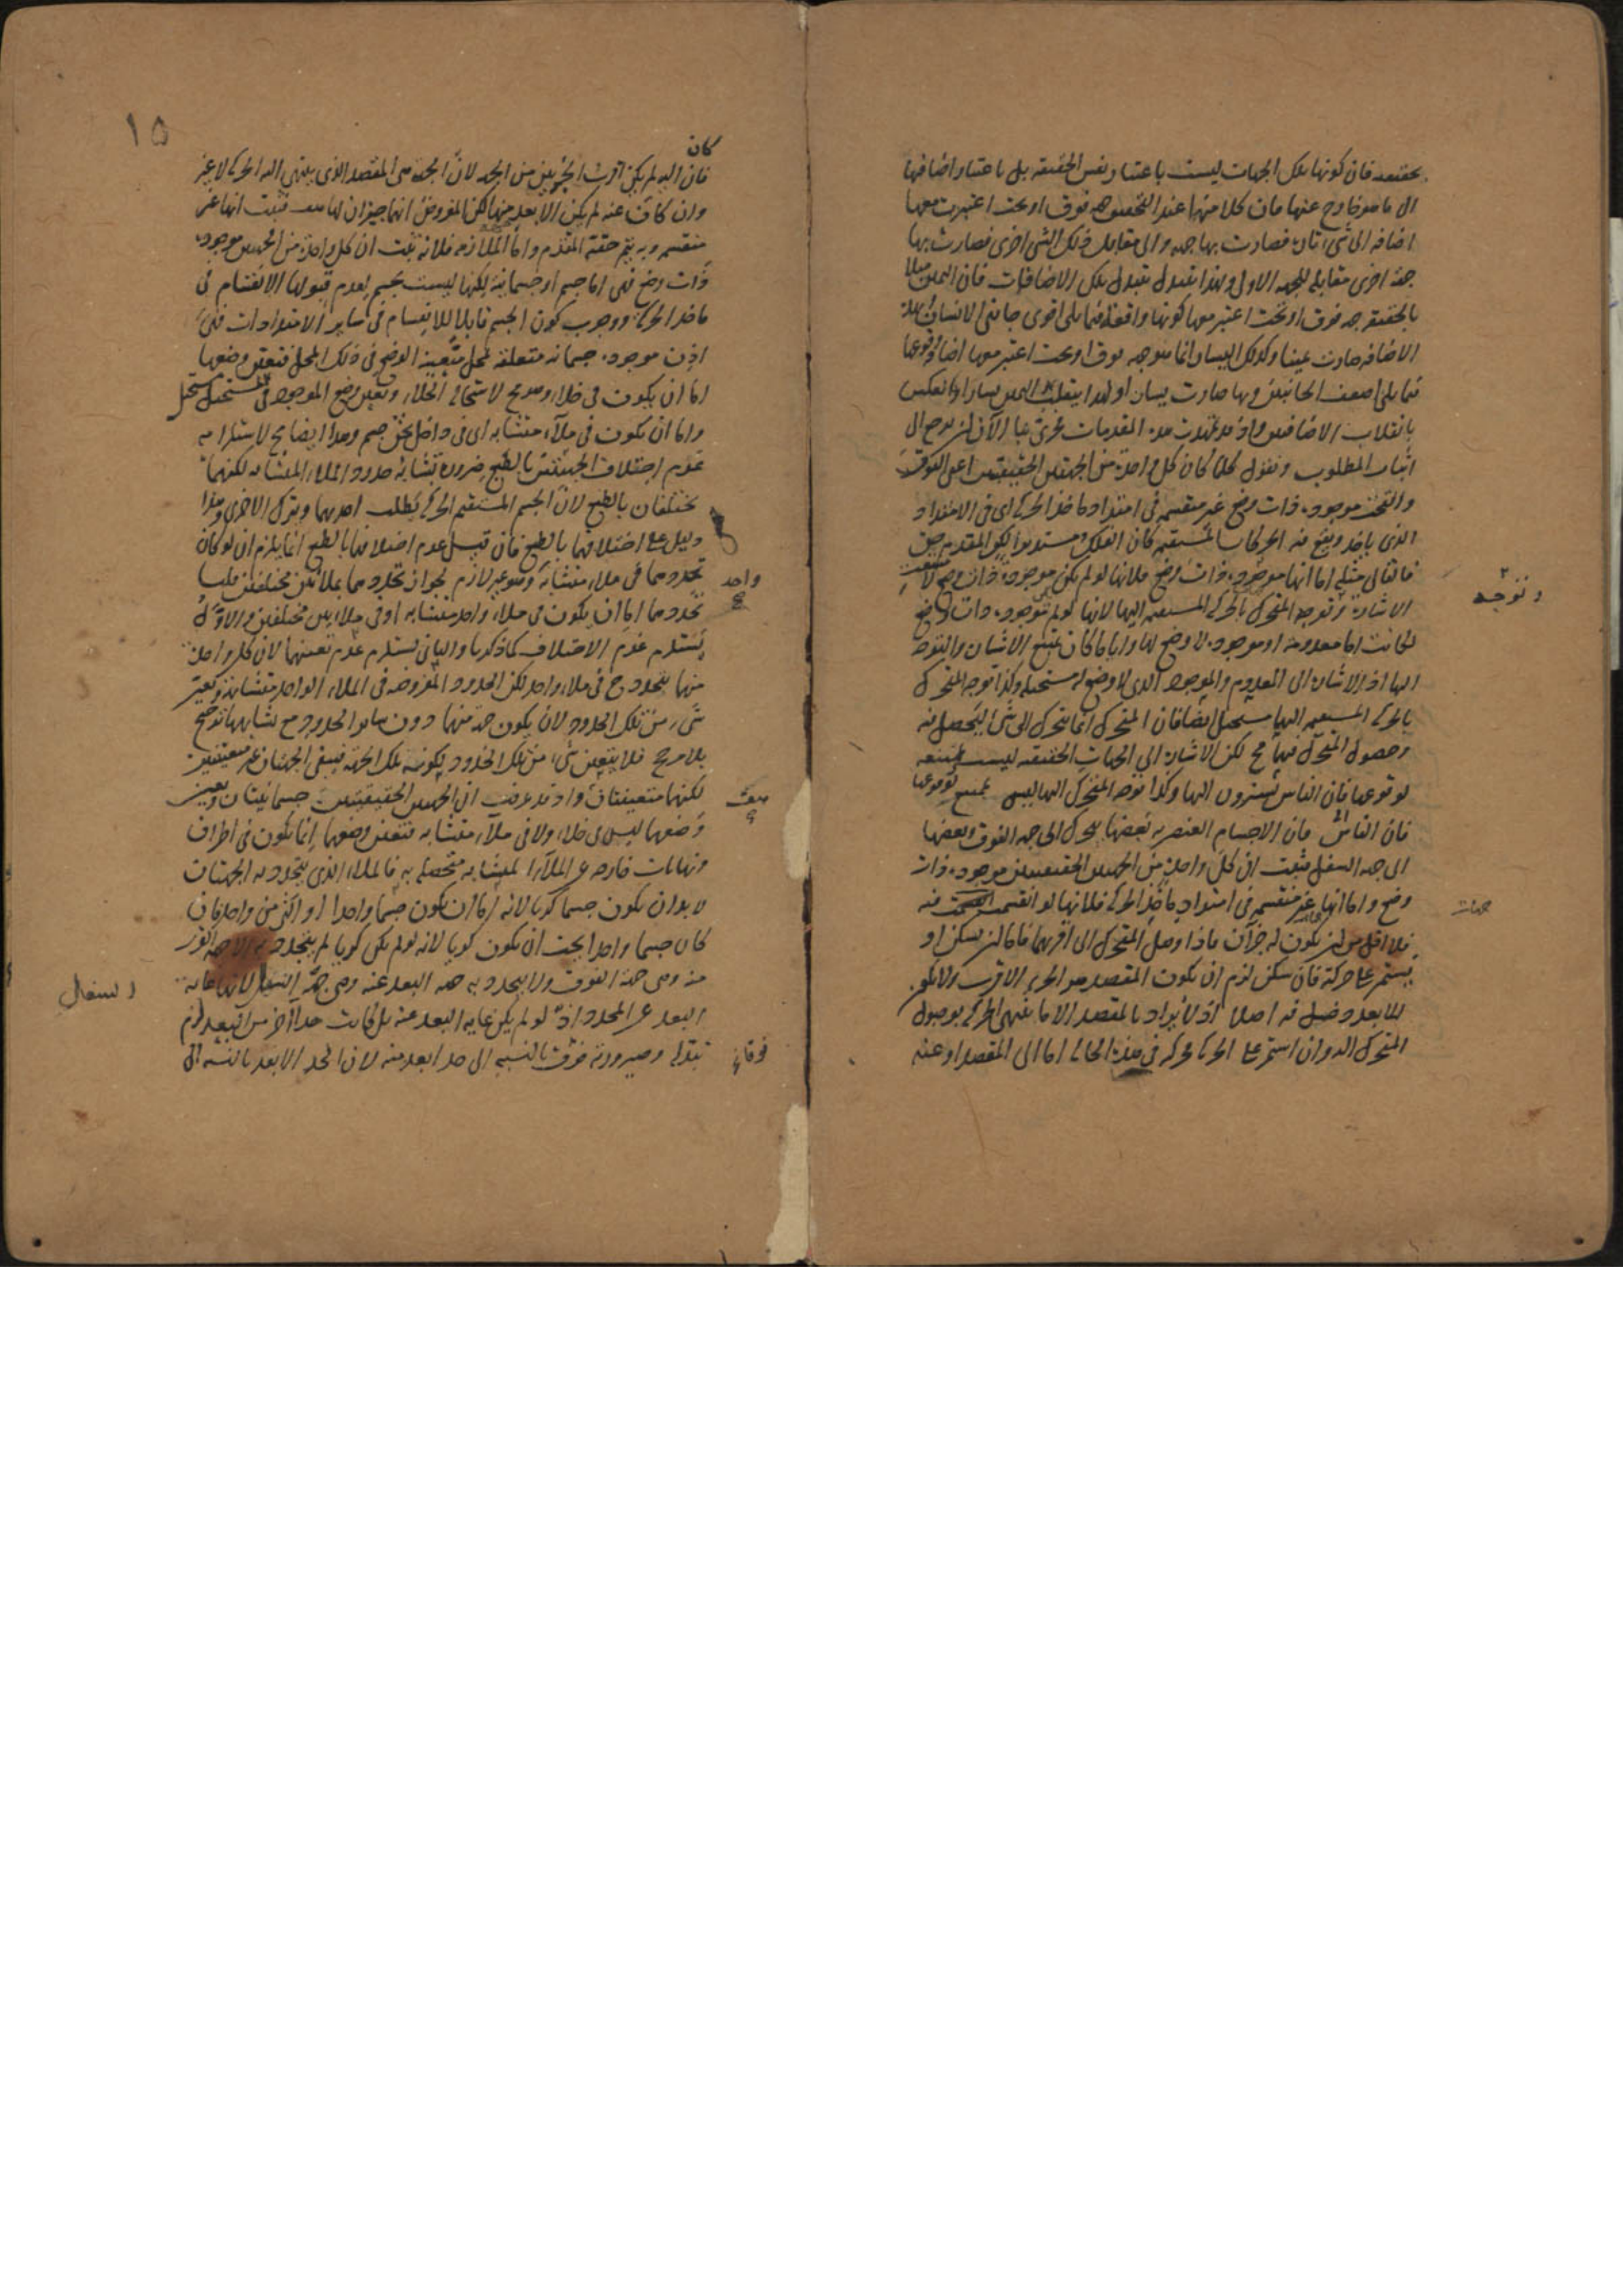 فان كونها تلك الجهات ليست باعتبار نفس الحقيقة بل باعتبار اضافتها
الى ما هو خارج عنها فان كلا منها عند التحقيق جهة فوق او تحت اعتبرت معها
اضافة الى شيء ثان فصارت بها جهة والى مقابل ذلك الشيء اخرى فصارت بها
جهة اخرى مقابلة للجهة الاولى ولهذا يتبدل بتبدل تلك الاضافات فان اليمين مثلا
بالحقيقة جهة فوق او تحت اعتبر معها كونها واقعة فيما يلي اقوى جانبي الانسان
الاضافة صارت يمينا وكذلك اليسار انما هو جهة فوق او تحت اعتبر معها اضافة وقوعها
فيما يلي اضعف الجانبين وبها صارت يسارا ولهذا ينقلب اليمين يسارا وبالعكس
بانقلاب الاضافتين واذ قد تمهدت هذه المقدمات الآن ان نرجع الى
اثبات المطلوب ونقول كلما كان كل واحدة من الجهتين الحقيقيتين اعني الفوق
والتحت موجودة ذات وضع غير منقسمة في امتداد مأخذ الحركة اي في الامتداد
الذي ويقع فيه الحركات المستقيمة كان الفلك مستديرا لكن المقدم حق
فالتالي مثله اما انها موجودة ذات وضع فلانها لو لم تكن موجودة ذات وضع لا
الاشارة وتوجه المتحرك بالحركة المستقيمة اليها لانها لو لم توجد ذات وضع
لكانت اما معدومة او موجودة لا وضع لها واياما كان يمتنع الاشارة والتوجه
اليها اذ الاشارة الى المعدوم والموجود الذي لا وضع له مستحيلة وكذا توجه المتحرك
بالحركة المستقيمة اليها مستحيل ايضا فان المتحرك انما يتحرك الى شيء ليحصل فيه
وحصول المتحرك فيها مح لكن الاشارة الى الجهات الحقيقية ليست بممتنعة
لوقوعها فان الناس يشيرون اليها وكذا توجه المتحرك اليها ليس بممتنع لوقوعها
فان الاجسام العنصرية بعضها يتحرك الى جهة الفوق وبعضها
الى جهة السفل فثبت ان كل واحدة من الجهتين الحقيقيتين موجودة ذات
وضع واما انها غير منقسمة في امتداد مأخذ الحركة فلانها لو انقسمت فيه
فلا اقل من ان يكون له جزآن فاذا وصل المتحرك الى اقربهما فاما ان يسكن او
يستمر على حركته فان سكن لزم ان يكون المقصد هو الجزء الاقرب ولا يكون
للابعد دخل فيه اصلا اذ لا يراد بالمقصد الا ما ينتهي الحركة بوصول
المتحرك اليه وان استمر على الحركة في هذه الحالة اما الى المقصد او عنه
و توجه
جهات
١٥
كان
فان اليه لم يكن اقرب الجزئين من الجهة لان الجهة هي المقصد الذي ينتهي اليه الحركة لا غير
وان كان عنه لم يكن الابعد منها لكن المفروض انهما جزآن لها فثبت انها غير
منقسمة وبه يتم حقية المقدم واما الملازمة فلانه ثبت ان كل واحدة من الجهتين موجودة
ذات وضع فهي اما جسم او جسمانية لكنها ليست بجسم لعدم قبولها الانقسام في
مأخذ الحركة ووجوب كون الجسم قابلا للانقسام في ساير الامتدادات فهي
اذن موجودة جسمانية متعلقة بمحل متعينة الوضع في ذلك المحل فتعين وضعها
اما ان يكون في خلاء وهو مح لاستحالة الخلاء وتعين وضع الموجود في المستحيل مستحيل
واما ان يكون في ملاء متشابه اي في داخل ثخن جسم وهذا ايضا مح لاستلزامه
عدم اختلاف الجهتين بالطبع ضرورة تشابه حدود الملاء المتشابه لكنهما
مختلفان بالطبع لان الجسم المستقيم الحركة يطلب احديهما ويترك الاخرى وهذا
دليل على اختلافهما بالطبع فان قيل عدم اختلافهما بالطبع انما يلزم ان لو كان
تحددهما في ملاء متشابه وهو غير لازم لجواز تحددهما بملائين مختلفين قلنا
تحددهما اما ان يكون في ملاء واحد متشابه او في ملائين مختلفين والاول
يستلزم عدم الاختلاف كما ذكرنا والثاني يستلزم عدم تعينهما لان كل واحدة
منهما يتحدد ح في ملاء واحد لكن الحدود المفروضة في الملاء الواحد متشابهة وتعين
شيء من تلك الحدود لان يكون جهة منهما دون ساير الحدود مع تشابهها ترجيح
بلا مرجح فلا يتعين شيء من تلك الحدود لكونه تلك الجهة فيبقى الجهتان غير متعينتين
لكنهما متعينتان واذ قد عرفت ان الجهتين الحقيقيتين جسمانيتان وتعين
وضعهما ليس في خلاء ولا في ملاء متشابه فتعين وضعهما انما يكون في اطراف
ونهايات خارجة عن الملاء المتشابه متحصلة به فالملاء الذي يتحدد به الجهتان
لا بد ان يكون جسما كريا لانه اما ان يكون جسما واحدا او اكثر من واحد فان
كان جسما واحدا يجب ان يكون كريا لانه لو لم يكن كريا لم يتحدد به الا جهة القرب
منه وهي جهة الفوق ولا يتحدد به جهة البعد عنه وهي جهة السفل لانها غاية
البعد عن المحدد اذ لو لم يكن غاية البعد عنه بل كانت حدا آخر من البعد لزم
تبدله وصيرورته فوق بالنسبة الى حد ابعد منه لان الحد الابعد بالنسبة الى
واحد
صف
و السفل
فوقا